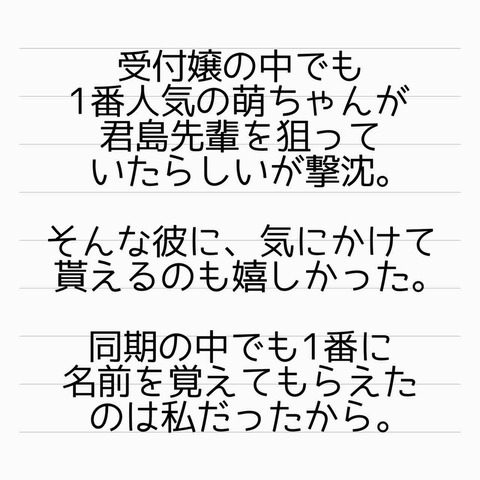 受付嬢の中でも
1番人気の萌ちゃんが
君島先輩を狙って
いたらしいが撃沈。
そんな彼に、気にかけて
貰えるのも嬉しかった。
同期の中でも1番に
名前を覚えてもらえた
のは私だったから。